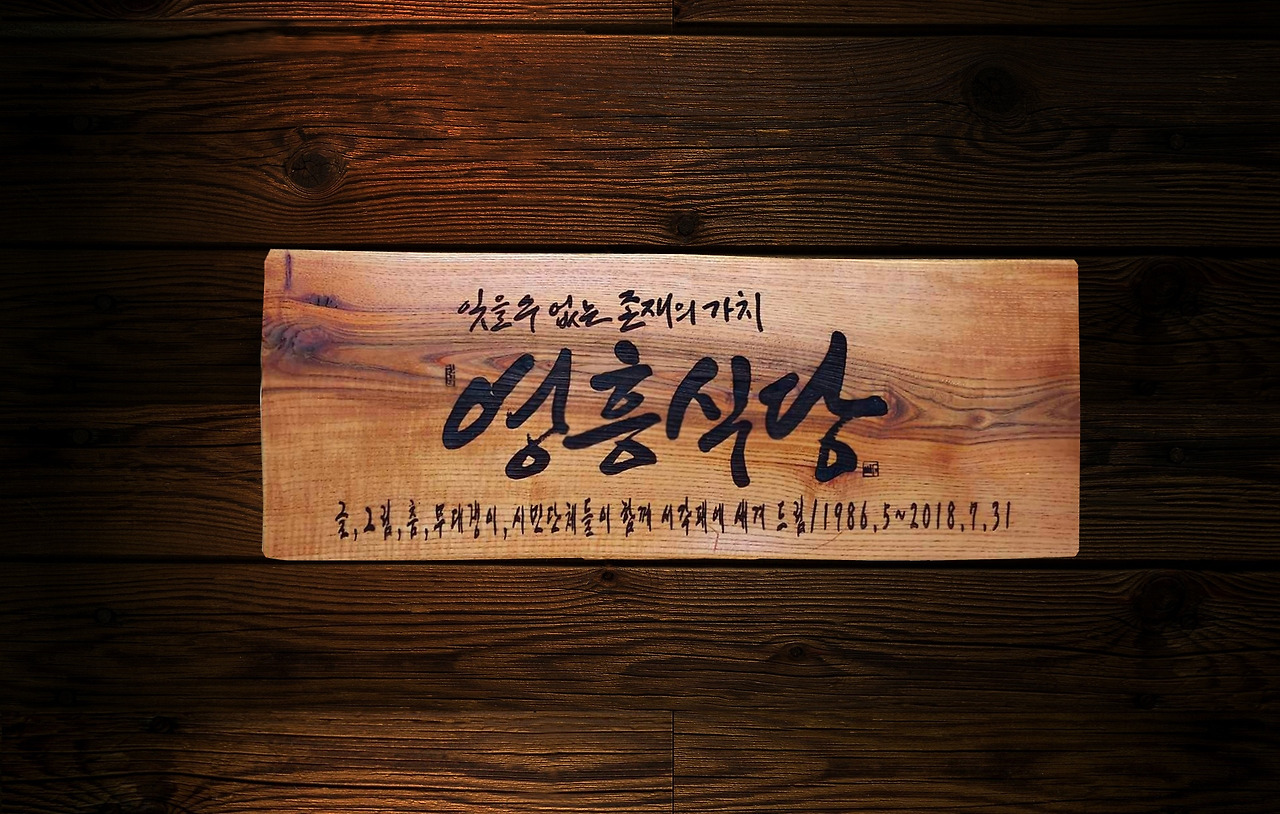 잊을수 없는 존재의 가치
영흥식당
글,그림,춤,무대쟁이,시민단체들이 함께 서각패에 새겨 드림/1986.5~2018.7.31